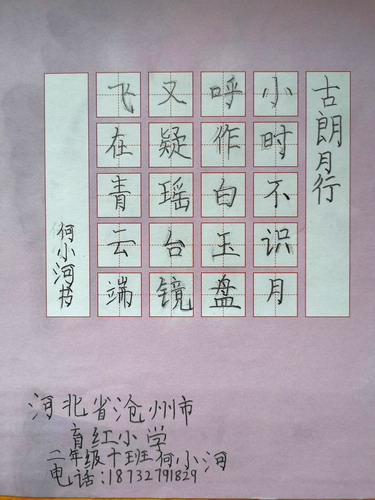 古朗月行
小时不识月
呼作白玉盘
又疑瑶台镜
飞在青云端
何小河书
河北省沧州市
育红小学
二年级十班何小河
电话：18732791829